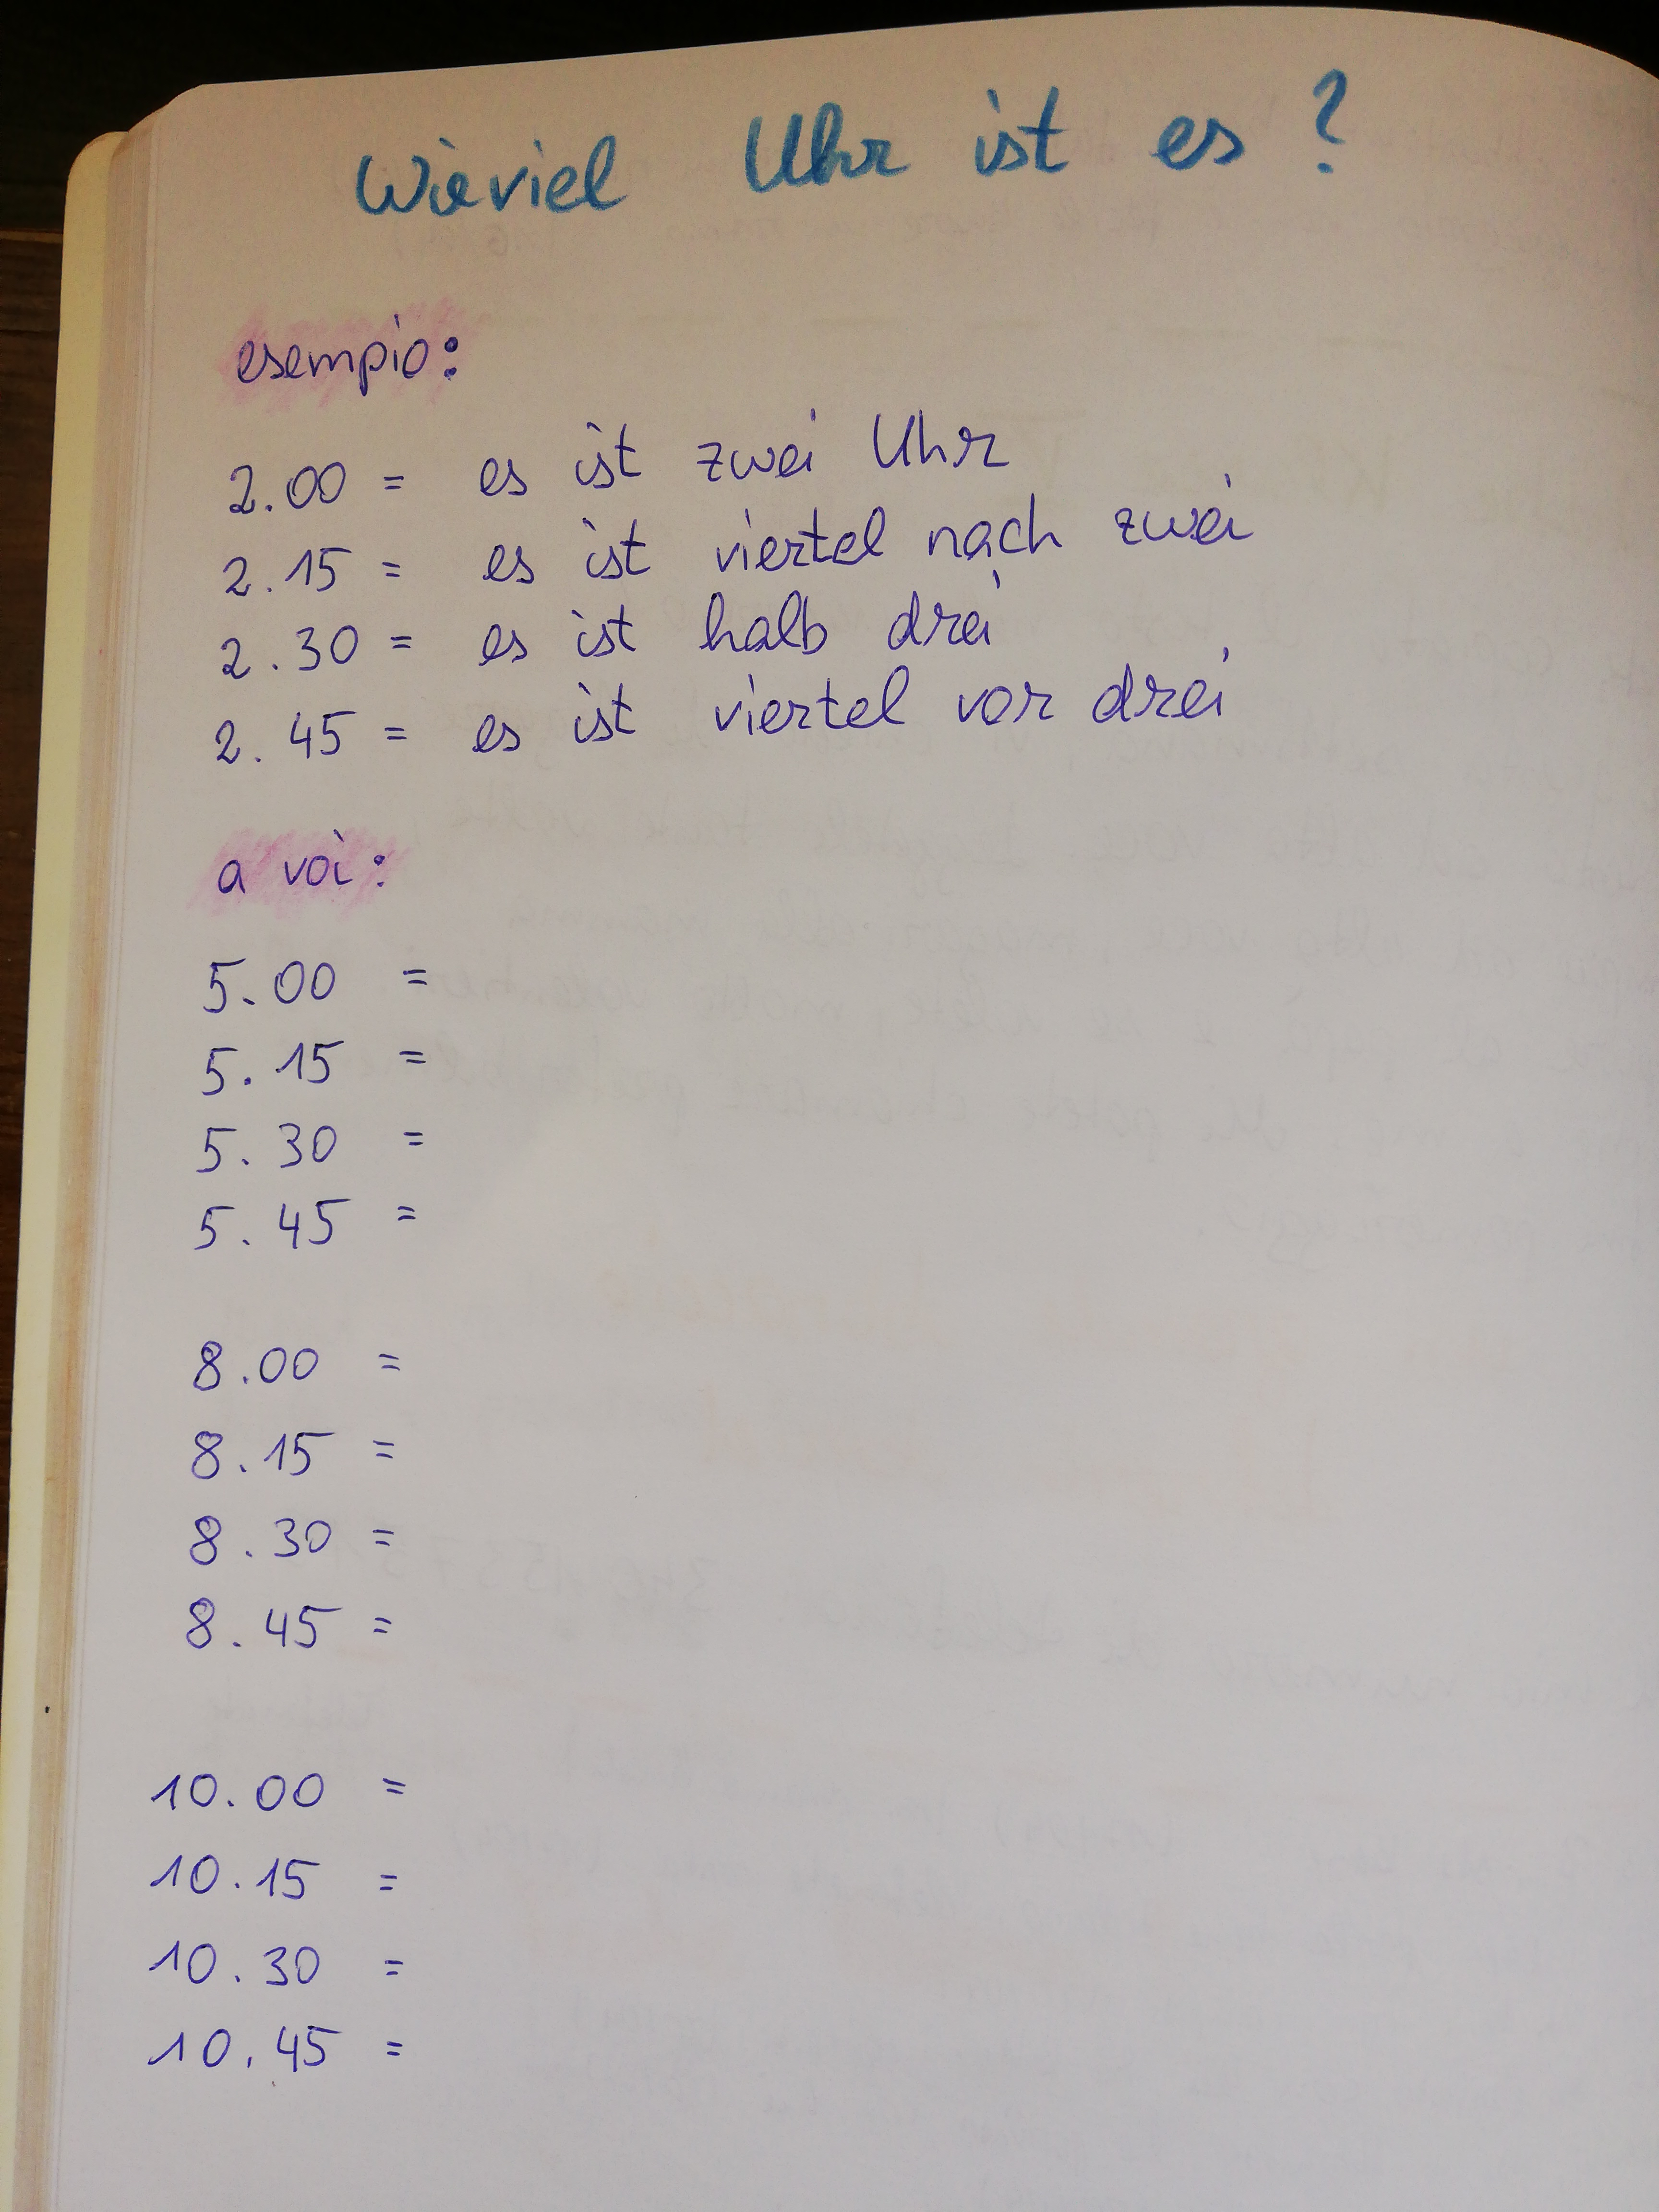 Wieviel Uhr ist es ?
esempio:
2.00 = es ist zwei Uhr
2.15 = es ist viertel nach zwei
2.30 = es ist halb drei
2.45 = es ist viertel vor drei
a voi:
5.00 =
5.15 =
5.30 =
5.45 =
8.00 =
8.15 =
8.30 =
8.45 =
10.00 =
10.15 =
10.30 =
10.45 =